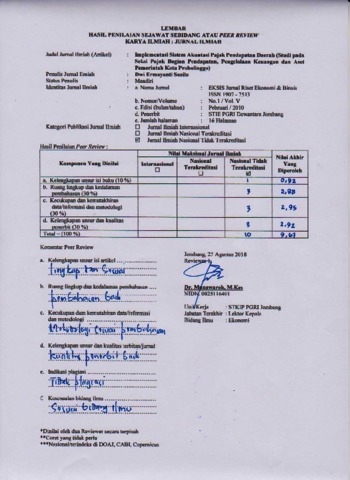 LEMBAR
HASIL PENILAIAN SEJAWAT SEBIDANG ATAU PEER REVIEW
KARYA ILMIAH : JURNAL ILMIAH
Judul Jurnal Ilmiah (Artikel) : Implementasi Sistem Akuntasi Pajak Pendapatan Daerah (Studi pada
Seksi Pajak Bagian Pendapatan, Pengelolaan Keuangan dan Aset
Pemerintah Kota Probolinggo)
Penulis Jurnal Ilmiah : Dwi Ermayanti Susilo
Status Penulis : Mandiri
Identitas Jurnal Ilmiah : a. Nama Jurnal : EKSIS Jurnal Riset Ekonomi & Bisnis
ISSN 1907 - 7513
b. Nomor/Volume : No.1 / Vol. V
c. Edisi (bulan/tahun) : Februari / 2010
d. Penerbit : STIE PGRI Dewantara Jombang
e. Jumlah halaman : 16 Halaman
Kategori Publikasi Jurnal Ilmiah : Jurnal Ilmiah Internasional
Jurnal Ilmiah Nasional Terakreditasi
Jurnal Ilmiah Nasional Tidak Terakreditasi
Hasil Penilaian Peer Review :
Komponen Yang Dinilai
Nilai Maksimal Jurnal Ilmiah
Internasional
Nasional Terakreditasi
Nasional Tidak Terakreditasi
Nilai Akhir Yang Diperoleh
a. Kelengkapan unsur isi buku (10 %) 1
b. Ruang lingkup dan kedalaman
pembahasan (30 %) 3
c. Kecukupan dan kemutakhiran
data/informasi dan metodologi
(30 %) 3 2,95
d. Kelengkapan unsur dan kualitas
penerbit (30 %) 3 2,92
Total = (100 %) 10
Komentar Peer Review
a. Kelengkapan unsur isi artikel
Lengkap dan sesuai
b. Ruang lingkup dan kedalaman pembahasan
pembahasan baik
c. Kecukupan dan kemutakhiran data/informasi
dan metodologi
Metodologi sesuai pembahasan
d. Kelengkapan unsur dan kualitas terbitan/jurnal
kualitas penerbit baik
e. Indikasi plagiasi
Tidak plagiasi
f. Kesesuaian bidang ilmu
Sesuai bidang ilmu
Jombang, 25 Agustus 2018
Reviewer
Dr. Munawaroh, M.Kes
NIDN. 0025116401
Unit Kerja : STKIP PGRI Jombang
Jabatan Terakhir : Lektor Kepala
Bidang Ilmu : Ekonomi
*Dinilai oleh dua Reviewer secara terpisah
**Coret yang tidak perlu
***Nasional/terindeks di DOAJ, CABI, Copernicus